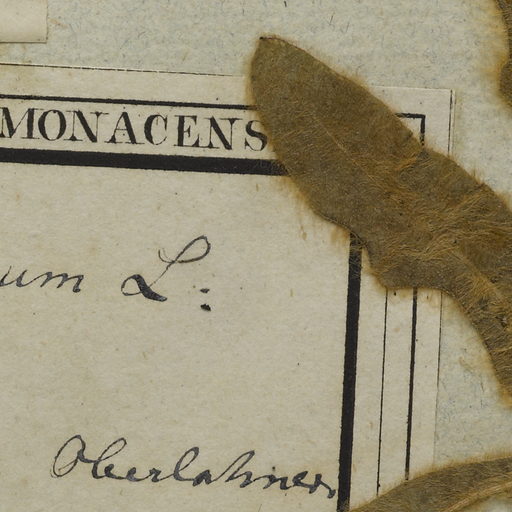 MONACENS
um L.
Oberlahner